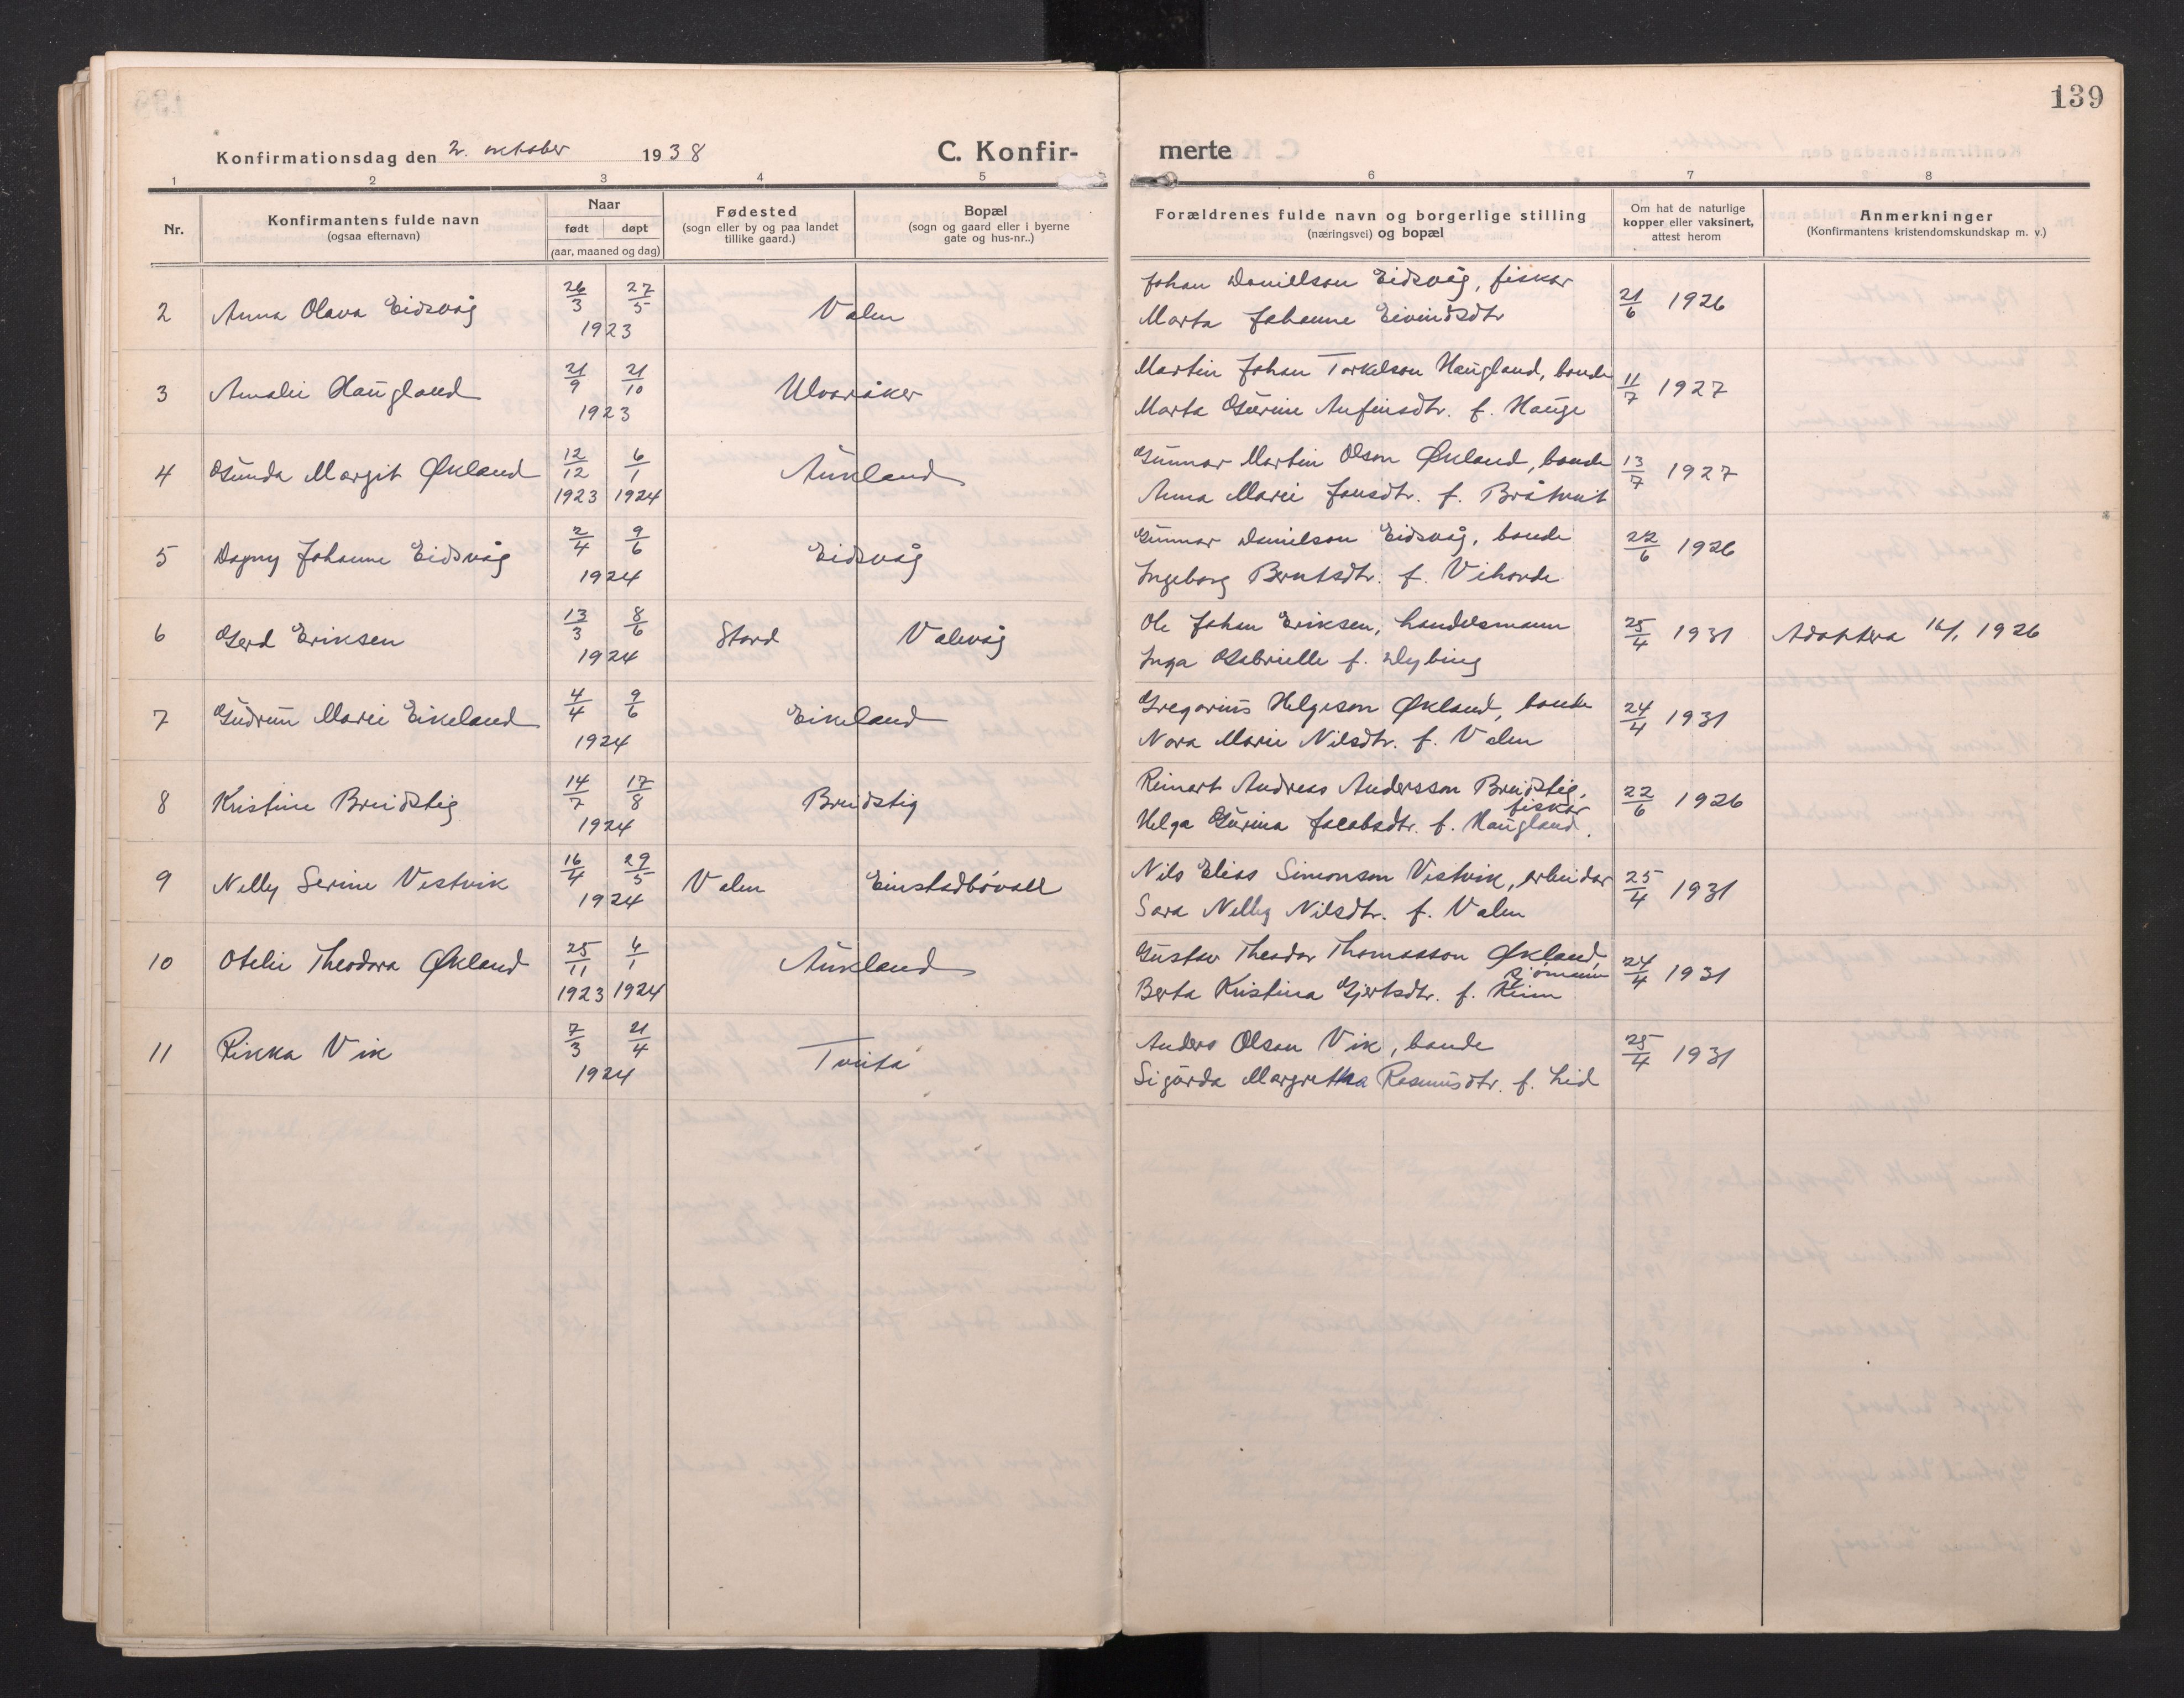 139
Konfirmationsdag den 2. oktober 1938
C. Konfir-
merte
1 2 3 4 5 6 7 8
Nr.
Konfirmantens fulde navn
(ogsaa efternavn)
Naar
født døpt
(aar, maaned og dag)
Fødested
(sogn eller by og paa landet
tillike gaard.)
Bopæl
(sogn og gaard eller i byerne
gate og hus-nr..)
Forældrenes fulde navn og borgerlige stilling
(næringsvei) og bopæl
Om hat de naturlige
kopper eller vaksinert,
attest herom
Anmerkninger
(Konfirmantens kristendomskundskap m. v.)
2 Anna Olava Eidsvåg 26/3 27/5 1923 Valen
Johan Danielsson Eidsvåg, fiskar
Marta Johanne Eivindsdtr
21/6 1926
3 Amalie Haugland 21/9 21/10 1923 Ulvaråker
Martin Johan Torkelson Haugland, bonde
Marta Gurine Anfinsdtr. f. Hauge
11/7 1927
4 Gunda Margit Økland 12/12 1923 6/1 1924 Aukland
Gunnar Martin Olson Økland, bonde
Anna Marie Jonsdtr. f. Bråtveit
13/7 1927
5 Dagny Johanne Eidsvåg 2/4 9/6 1924 Eidsvåg
Gunnar Danielson Eidsvåg, bonde
Ingeborg Berntsdtr. f. Vihovde
22/6 1926
6 Gerd Eriksen 13/3 8/6 1924 Stord Valevåg
Ole Johan Eriksen, handelsmann
Inga Gabrielle f. Dybing
25/4 1931 Adoptera 16/1 1926
7 Gudrun Marie Eikeland 4/4 9/6 1924 Eikeland
Gregorius Helgeson Økland, bonde
Nora Marie Nilsdtr. f. Valen
24/4 1931
8 Kristine Breidstig 14/7 17/8 1924 Breidstig
Reinart Andreas Andersson Breidstig,
fiskar
Helga Gurina Jacobsdtr. f. Haugland.
22/6 1926
9 Nelly Serine Vestvik 16/4 29/5 1924 Valen Einstadbövoll
Nils Elias Simonson Vestvik, arbeidar
Sara Nelly Nilsdtr. f. Valen
25/4 1931
10 Otelie Theodora Økland 25/11 1923 6/1 1924 Aukland
Gustav Theodor Thomasson Økland,
sjömann
Berta Kristina Gjertsdtr. f. Reim
24/4 1931
11 Rikka Vik 7/3 21/4 1924 Tveita
Anders Olson Vik, bonde
Sigurda Margretha Rasmusdtr. f. Lid
25/4 1931